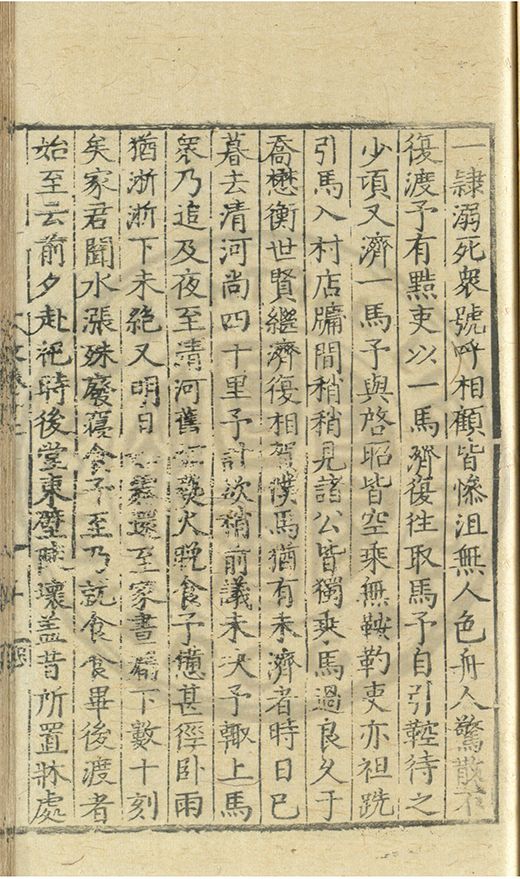 一隷溺死衆號呼相顧皆慘沮無人色舟人驚散不
復渡予有黠吏以一馬濟復徃取馬予自引鞚待之
少頃又濟一馬予與啓昭皆空乗無鞍勒吏亦袒跣
引馬入村店牖間稍稍見諸公皆獨乗馬過良久于
喬懋衡世賢繼濟復相賀僕馬猶有未濟者時日已
暮去清河尚四十里予計欲稍前議未决予輙上馬
衆乃追及夜至清河舊 火晩食予憊甚徑卧雨
猶淅淅下未絶又明日 還至家晝漏下數十刻
矣家君聞水漲殊廢寢食予至乃就食食畢後渡者
始至云前夕赴祀時後堂東壁 壞盖昔所置牀處